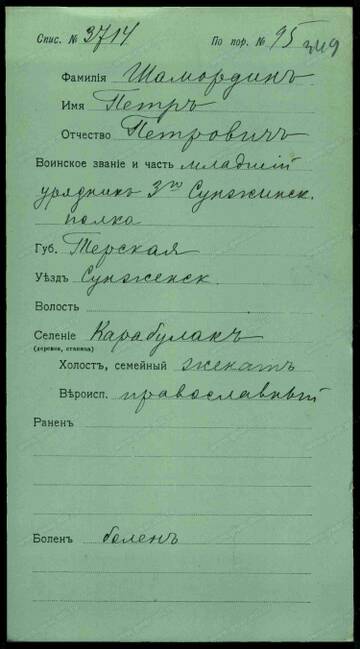 Спис. № 3714 По пор. № 95
Фамилія Шамординъ
Имя Петръ
Отчество Петровичъ
Воинское званіе и часть младшій
урядникъ 3го Сунжинск.
полка
Губ. Терская
Уѣздъ Сунженск.
Волость
Селеніе Карабулакъ
(деревня, станица)
Холостъ, семейный женатъ
Вѣроисп. православный
Раненъ
Боленъ боленъ